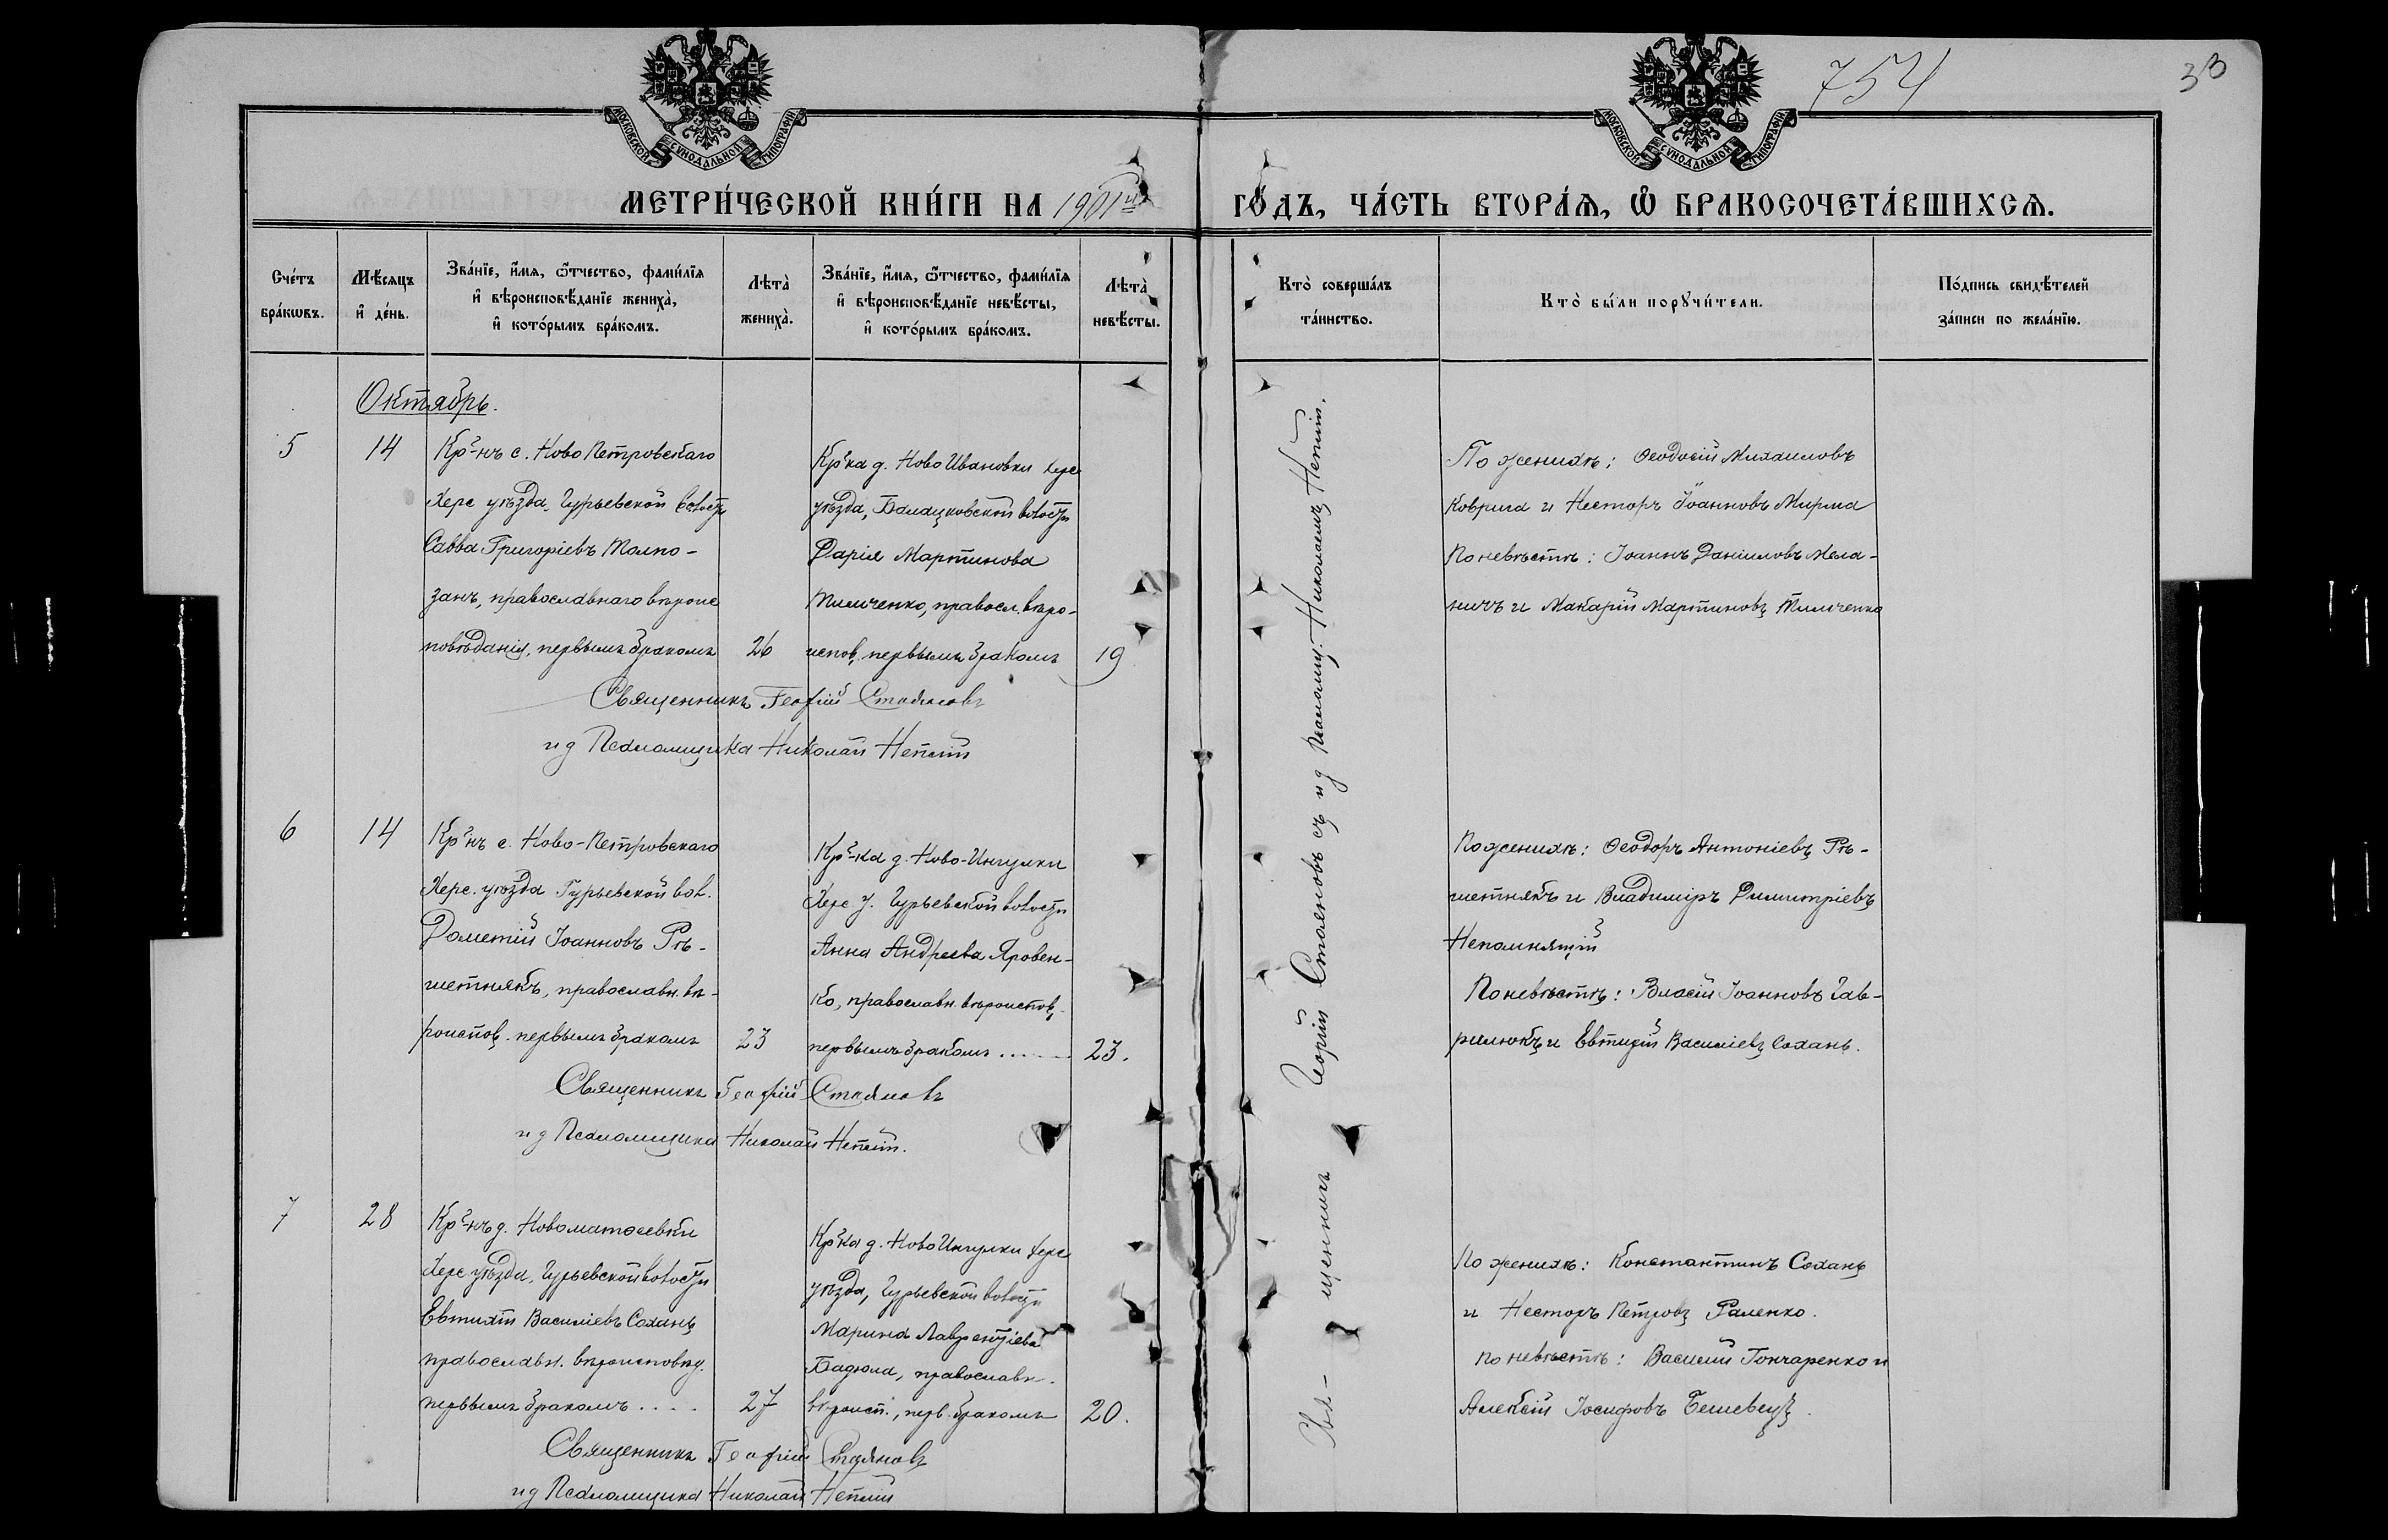 754
33
МОСКОВСКОЙ СѴНОДАЛЬНОЙ ТИПОГРАФІИ
МОСКОВСКОЙ СѴНОДАЛЬНОЙ ТИПОГРАФІИ
МЕТРИ́ЧЕСКОЙ КНИ́ГИ НА 1901й
ГО́ДЪ, ЧА́СТЬ ВТОРА́Ѧ, Ѿ БРАКОСОЧЕТА́ВШИХСѦ.
Сче́тъ
бра́кѡвъ.
Мѣ́сяцъ
и҆ де́нь.
Зва́нїе, и҆́мѧ, ѻ҆́тчество, фами́лїя
и҆ вѣроисповѣ́данїе жениха̀,
и҆ кото́рымъ бра́комъ.
Лѣта̀
жениха̀.
Зва́нїе, и҆́мѧ, ѻ҆́тчество, фами́лїя
и҆ вѣроисповѣ́данїе невѣ́сты,
и҆ кото́рымъ бра́комъ.
Лѣта̀
невѣ́сты.
Кто̀ соверша́лъ
та́инство.
Кто̀ бы́ли порꙋчи́тели.
По́дпись свидѣ́телей
за́писи по жела́нїю.
Октябрь.
5
14
Кр-нъ с. Ново Петровскаго
Херс уѣзда, Гурьевской волости
Савва Григоріевъ Толпо-
занъ, православнаго вѣроис
повѣданія, первымъ бракомъ
26
Кр-ка д. Ново Ивановки Херс
уѣзда, Балацковской волости
Дарія Мартинова
Тимченко, правосл. вѣро-
испов. первымъ бракомъ
19
По женихѣ: Ѳеодосій Михаиловъ
Коврига и Несторъ Іоанновъ Мирма
По невѣстѣ: Іоаннъ Даніиловъ Мела-
ничъ и Макарій Мартиновъ Тимченко
Священникъ Георгій Стояновъ
и д Псаломщика Николай Неплій
6
14
Кр-нъ с. Ново-Петровскаго
Херс. уѣзда Гурьевской вол.
Дометій Іоанновъ Рѣ-
шетнякъ, православн. вѣ-
роиспов. первымъ бракомъ
23
Кр-ка д. Ново-Ингулки
Херс у. Гурьевской волости
Анна Андреева Яровен-
ко, православн. вѣроиспов.
первымъ бракомъ .....
23.
По женихѣ: Ѳеодоръ Антоніевъ Рѣ-
шетнякъ и Владиміръ Димитріевъ
Непомнящій
По невѣстѣ: Власій Іоанновъ Гав-
рилюкъ и Евтихій Василіевъ Сохань.
Священникъ Георгій Стояновъ
и д Псаломщика Николай Неплій.
7
28
Кр-нъ д. Новоматвеевки
Херс уѣзда, Гурьевской волости
Евтихій Василіевъ Сохань
православн. вѣроисповѣд.
первымъ бракомъ ....
27
Кр-ка д. Ново Ингулки Херс
уѣзда, Гурьевской волости
Марина Лаврентіева
Бадюла, православн.
вѣроисп., перв. бракомъ
20.
По женихѣ: Константинъ Сохань
и Несторъ Петровъ Раленко.
По невѣстѣ: Василій Гончаренко и
Алексій Іосифовъ Бешевецъ.
Священникъ Георгій Стояновъ
и д Псаломщика Николай Неплій
Священникъ Георгій Стояновъ съ и д псаломщ. Николаемъ Неплій.